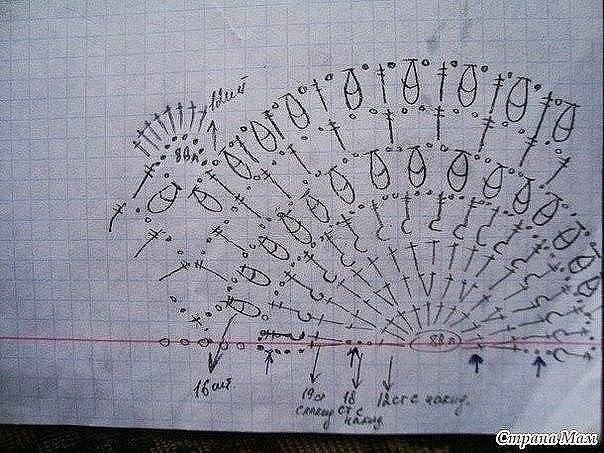 12шт
8вп
8вп
16шт
19ст
с накид
18
ст с
накид
12 ст с накид.
Страна Мам